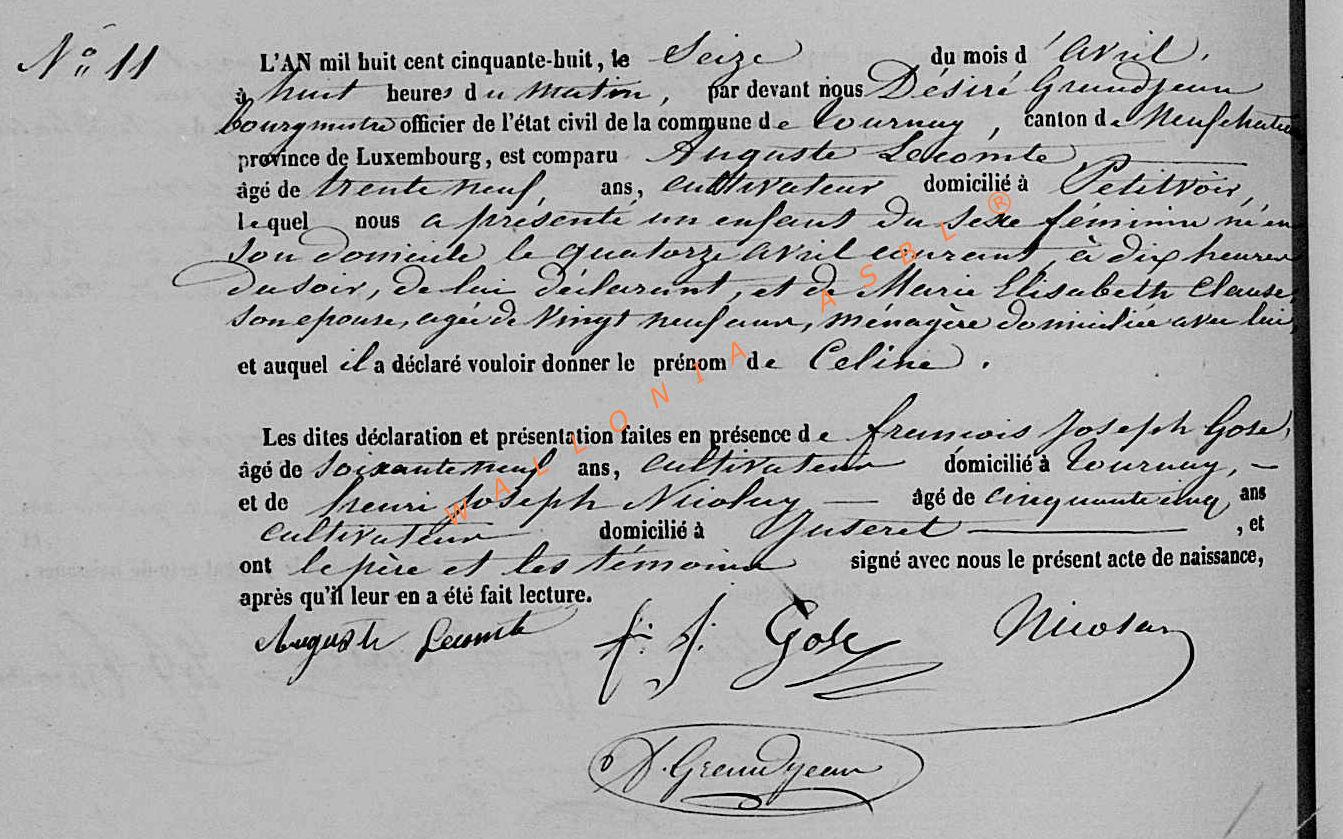 N° 11
L'AN mil huit cent cinquante-huit, le Seize du mois d'avril,
à huit heures du matin, par devant nous Désiré Grandjean
bourgmestre officier de l'état civil de la commune de Tournay, canton de Neufchateau
province de Luxembourg, est comparu Auguste Lecomte,
âgé de trente neuf ans, cultivateur domicilié à Petitvoir,
lequel nous a présenté un enfant du sexe féminin né en
son domicile le quatorze avril courant, à dix heures
du soir, de lui déclarant, et de Marie Elisabeth Clause,
son epouse, agée de vingt neuf ans, ménagère domiciliée avec lui,
et auquel il a déclaré vouloir donner le prénom de Celine.
Les dites déclaration et présentation faites en présence de françois Joseph Gose,
âgé de soixante neuf ans, cultivateur domicilié à Tournay, —
et de henri Joseph Nicolay — âgé de cinquante cinq ans
cultivateur domicilié à Juseret — , et
ont le père et les témoins signé avec nous le présent acte de naissance,
après qu'il leur en a été fait lecture.
Auguste Lecomte f. j. Gose Nicolay
D. Grandjean
WALLONIA ASBL ®